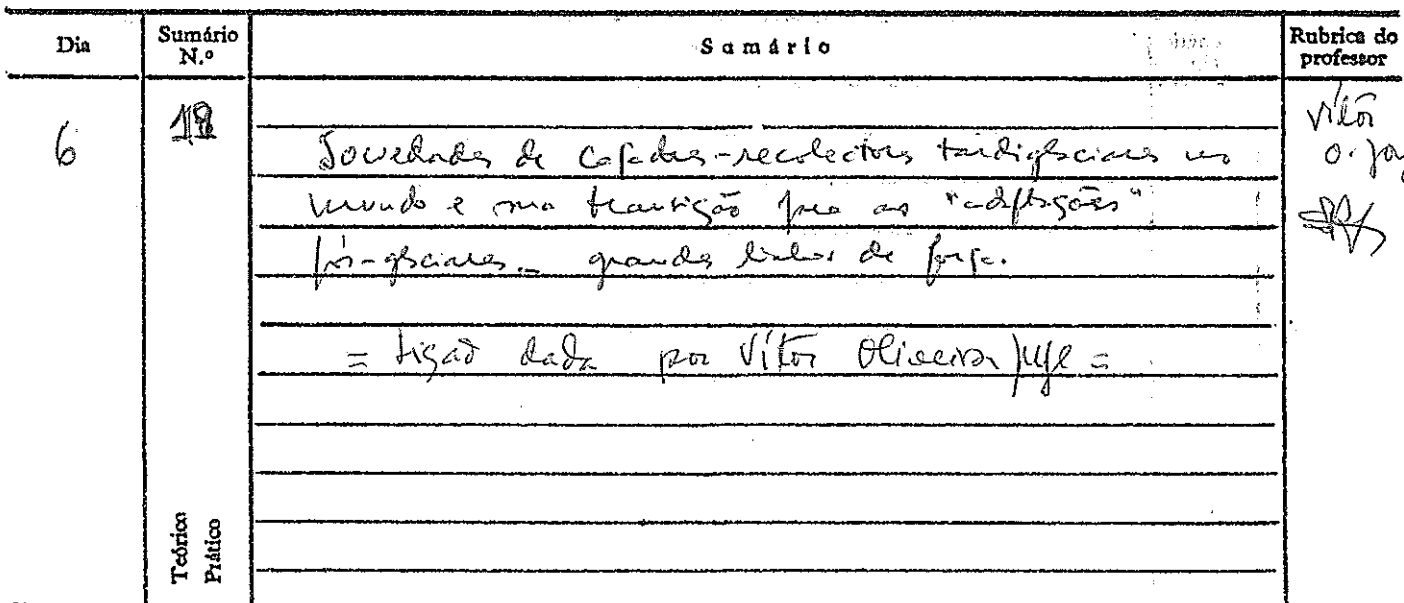 Dia
Sumário N.º
Sumário
Rubrica do professor
6
18
Sociedades de caçadores-recolectores tardiglaciares no
mundo e sua transição para as "adaptações"
pós-glaciares - grandes linhas de força.
= Lição dada por Vítor Oliveira Jorge =
Vítor
O. Jorge
Teórico
Prático